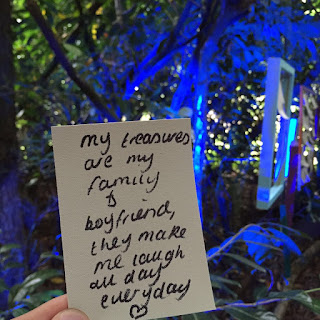 my treasures
are my
family
&
boyfriend,
they make
me laugh
all day
everyday
♡